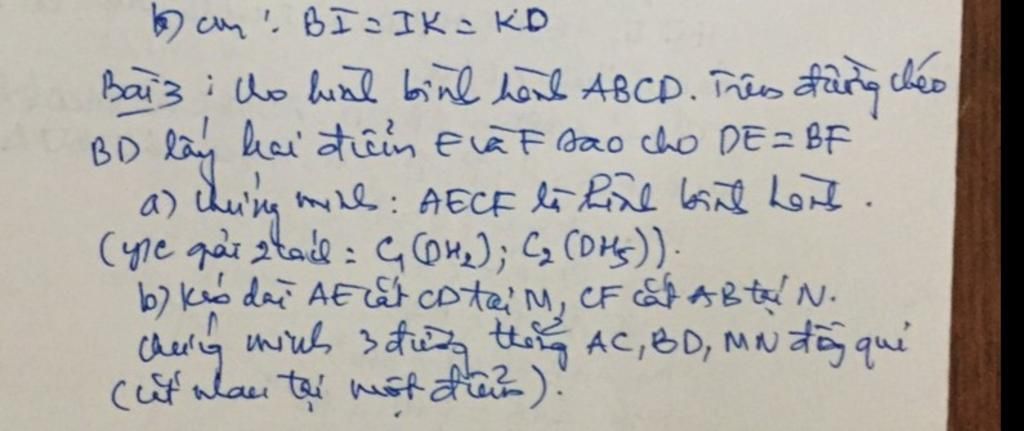 b) cm : BI = IK = KD
Bài 3 : Cho hình bình hành ABCD. Trên đường chéo
BD lấy hai điểm E và F sao cho DE = BF
a) Chứng minh : AECF là hình bình hành .
(Y/c giải 2 cách : C₁ (DH₂) ; C₂ (DH₅)).
b) Kéo dài AE cắt CD tại M, CF cắt AB tại N.
Chứng minh 3 đường thẳng AC, BD, MN đồng qui
(cắt nhau tại một điểm).